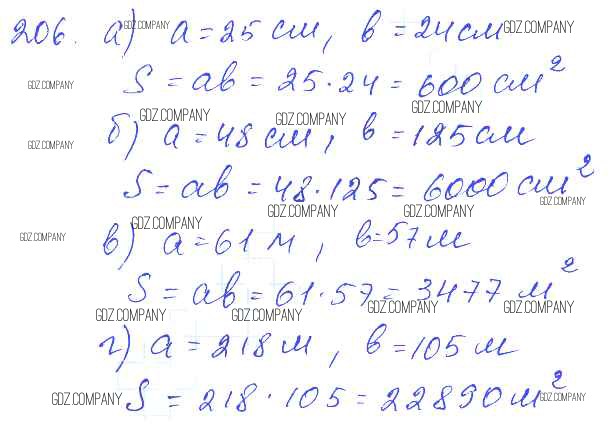 206. а) a = 25 см, b = 24 см GDZ.COMPANY
GDZ.COMPANY
GDZ.COMPANY S = ab = 25 · 24 = 600 см²
GDZ.COMPANY GDZ.COMPANY GDZ.COMPANY
GDZ.COMPANY б) a = 48 см, b = 125 см
S = ab = 48 · 125 = 6000 см²
GDZ.COMPANY GDZ.COMPANY GDZ.COMPANY
GDZ.COMPANY GDZ.COMPANY
в) a = 61 м, b = 57 м
S = ab = 61 · 57 = 3477 м²
GDZ.COMPANY GDZ.COMPANY GDZ.COMPANY GDZ.COMPANY
г) a = 218 м, b = 105 м
GDZ.COMPANY S = 218 · 105 = 22890 м² GDZ.COMPANY